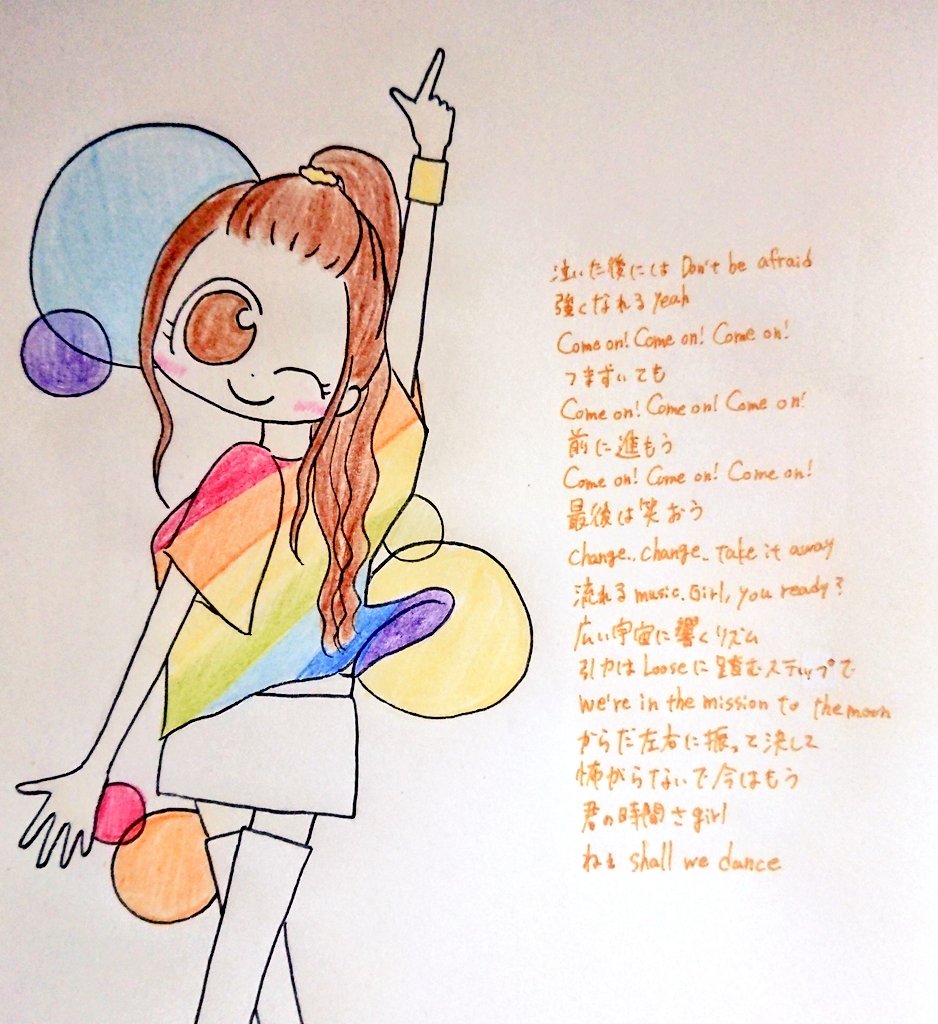 泣いた後には Don't be afraid
強くなれる Yeah
Come on! Come on! Come on!
つまずいても
Come on! Come on! Come on!
前に進もう
Come on! Come on! Come on!
最後は笑おう
Change.. Change.. Take it away
流れる music. Girl, you ready?
広い宇宙に響くリズム
引力は Looseに踏むステップで
We're in the mission to the moon
からだ左右に振って決して
怖がらないで今はもう
君の時間さ girl
ねぇ shall we dance